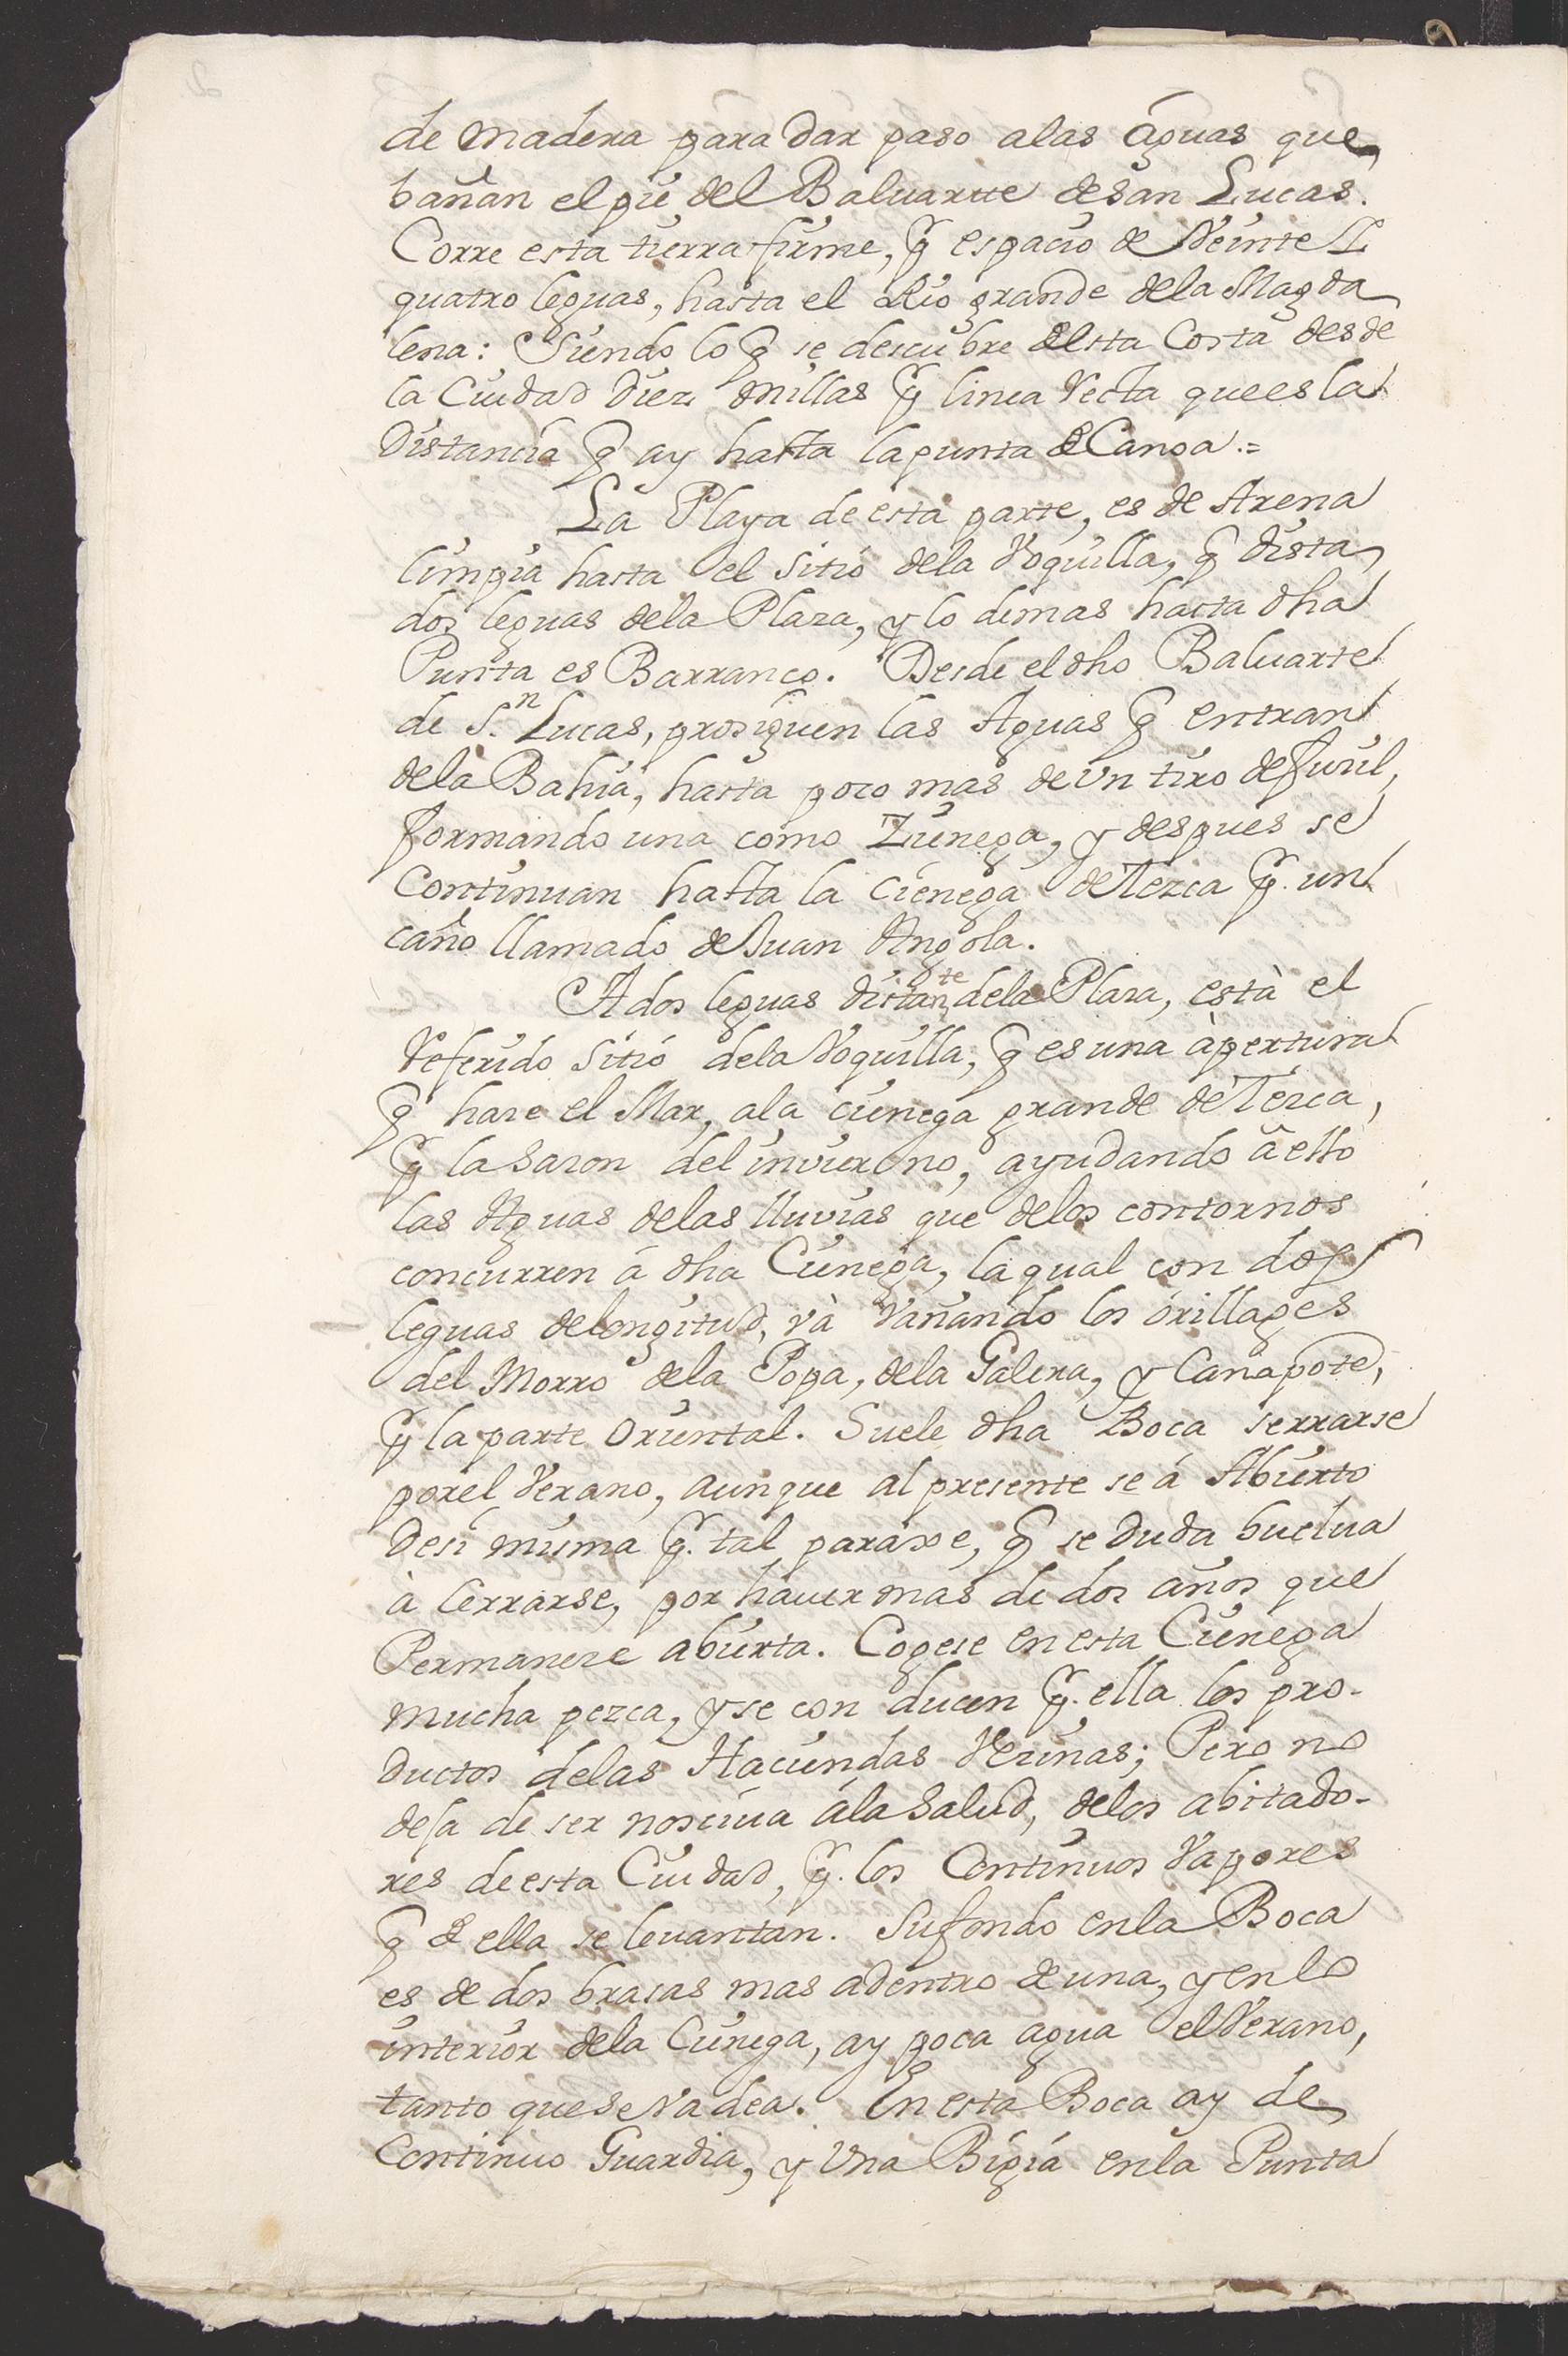 de madera para dar paso alas aguas que
bañan el pie del Baluarte de san Lucas.
Corre esta tierra firme, p̃ espacio de Veinte y
quatro leguas, hasta el Rio grande dela Magda
lena: Siendo lo q̃ se descubre desta Costa desde
la Ciudad Diez millas p̃ linea Recta que es la
Distancia q̃ ay hasta la punta de Canoa.=
La Playa de esta parte, es de Arena
limpia hasta el sitio dela Voquilla, q̃ dista
dos leguas dela Plaza, y lo demas hasta dha
Punta es Barranco. Desde el dho Baluarte
de S.n Lucas, prosiguen las Aguas q̃ entran
dela Bahia, hasta poco mas de Vn tiro de fusil,
formando una como Zienega, y despues se
Continuan hasta la Cienega de Tezca p̃. un
caño llamado de Juan Angola.
A dos leguas distante dela Plaza, està el
Referido sitio dela Voquilla, q̃ es una àpertura
q̃ haze el Mar, ala cienega grande de Tezca,
p̃ la sazon del invierno, ayudando â esto
las Aguas delas lluvias que delos contornos
concurren â dha Cienega, la qual con dos
leguas de longitud, và Vañando los orillages
del Morro dela Popa, dela Galera, y Canapote,
p̃ la parte Oriental. Suele dha Boca serrarse
por el Verano, aunque al presente se á Abierto
desi misma p̃. tal paraxe, q̃ se duda buelua
à Cerrarse, por hauer mas de dos años que
Permaneze abierta. Cogese en esta Cienega
mucha pezca, y se con ducen p̃. ella los pro-
ductos delas Haciendas Vezinas; Pero no
deja de ser nosiua ála salud, delos abitado-
res de esta Ciudad, p̃. los Continuos Vapores
q̃ de ella se leuantan. Su fondo en la Boca
es de dos brasas mas adentro de una, y en lo
interior dela Cienega, ay poca agua el Verano,
tanto que se Vadea. En esta Boca ay de
Continuo Guardia, y Vna Bigía en la Punta